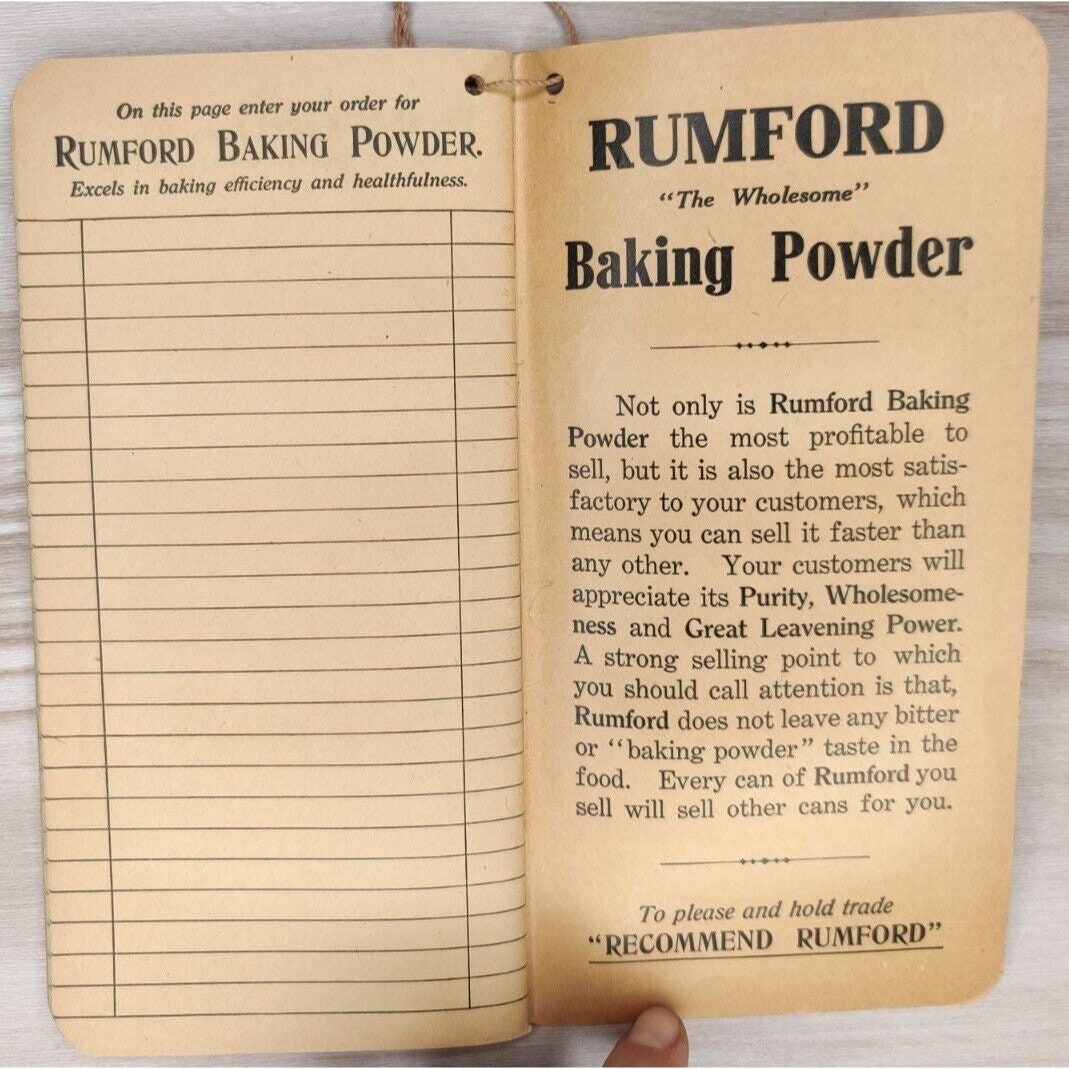 On this page enter your order for
RUMFORD BAKING POWDER.
Excels in baking efficiency and healthfulness.
RUMFORD
"The Wholesome"
Baking Powder
Not only is Rumford Baking
Powder the most profitable to
sell, but it is also the most satis-
factory to your customers, which
means you can sell it faster than
any other. Your customers will
appreciate its Purity, Wholesome-
ness and Great Leavening Power.
A strong selling point to which
you should call attention is that,
Rumford does not leave any bitter
or "baking powder" taste in the
food. Every can of Rumford you
sell will sell other cans for you.
To please and hold trade
"RECOMMEND RUMFORD"